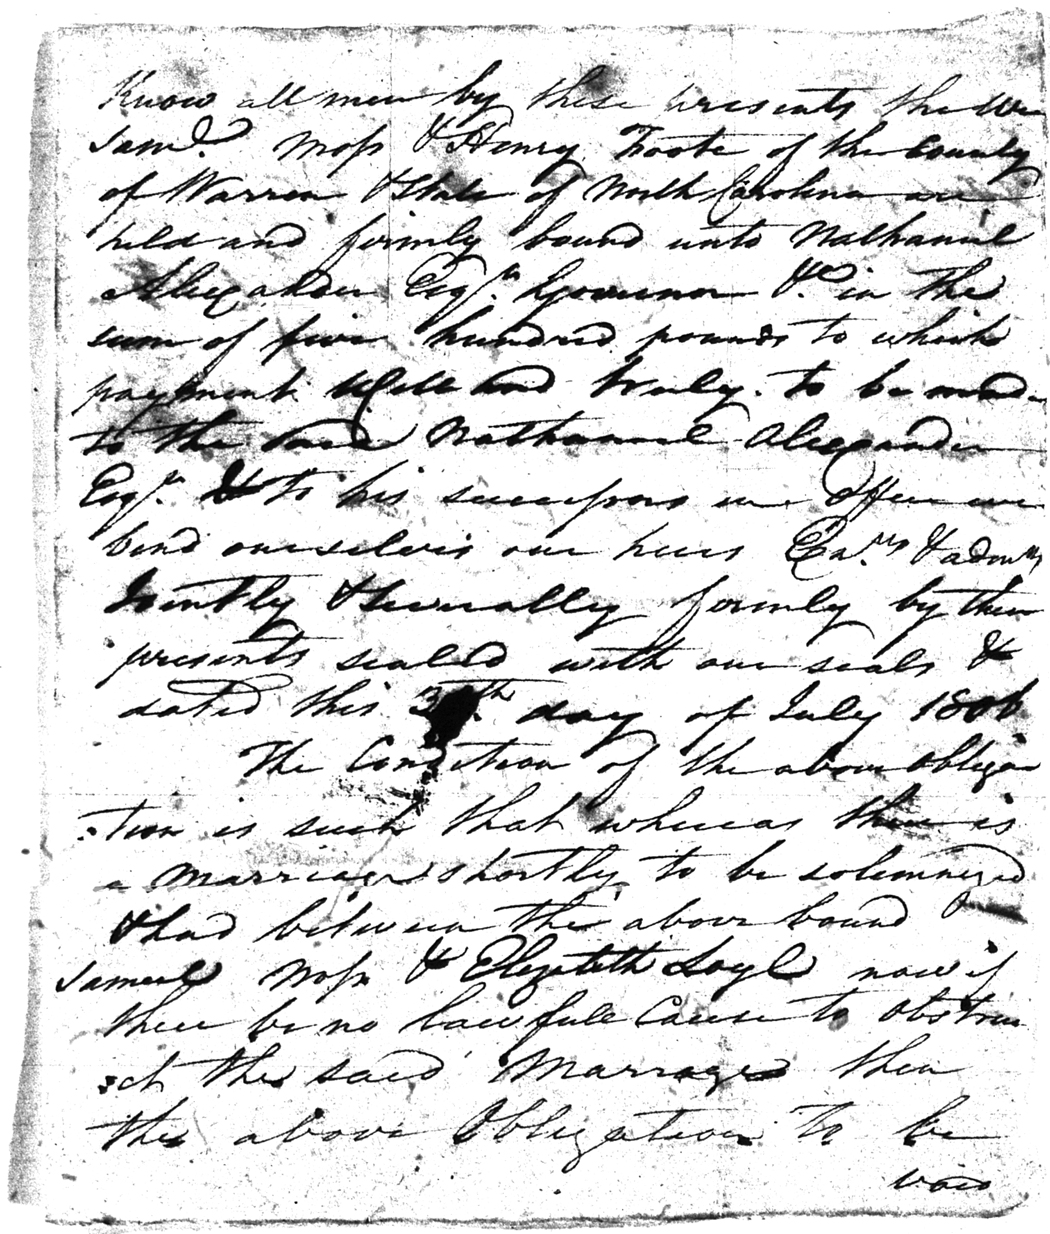 Know all men by these presents the We
Saml. Moss & Henry Foote of the County
of Warren & State of North Carolina are
held and firmly bound unto Nathaniel
Alexander Esqr. Governor &c in the
sum of five hundred pounds to which
payment well and truly to be made
to the said Nathaniel Alexander
Esqr. & to his successors in Office we
bind ourselves our heirs Exrs & admrs
Jointly & severally firmly by these
presents sealed with our seals &
dated this day of July 1806
The Condition of the above obliga
-tion is such that whereas there is
a Marriage shortly to be solemnized
& had between the above bound
Samuel Moss & Elizabeth now if
there be no lawfull Cause to obstru
-ct the said Marriage then
the above Obligation to be
void